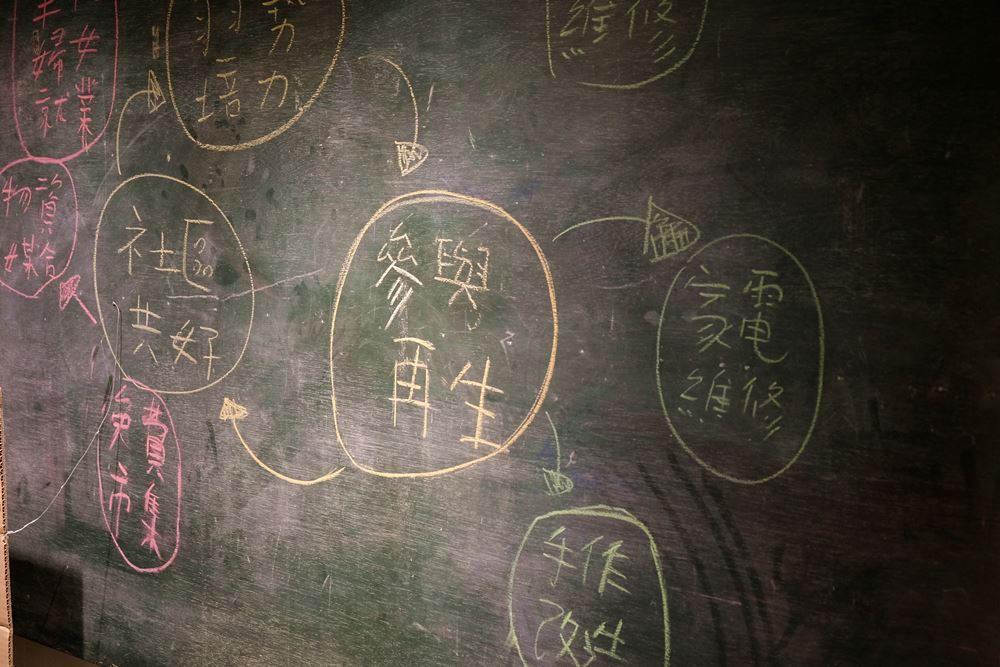 婦女
就業
培力
維修
物資
媒合
社區
共好
參與
再生
家電
維修
免費
市集
手作
改造